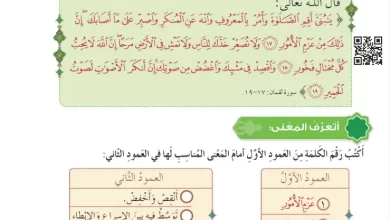 قال الله تعالى:
﴿ يَٰبُنَيَّ أَقِمِ ٱلصَّلَوٰةَ وَأۡمُرۡ بِٱلۡمَعۡرُوفِ وَٱنۡهَ عَنِ ٱلۡمُنكَرِ وَٱصۡبِرۡ عَلَىٰ مَآ أَصَابَكَۖ إِنَّ
ذَٰلِكَ مِنۡ عَزۡمِ ٱلۡأُمُورِ ١٧ وَلَا تُصَعِّرۡ خَدَّكَ لِلنَّاسِ وَلَا تَمۡشِ فِي ٱلۡأَرۡضِ مَرَحًاۖ إِنَّ ٱللَّهَ لَا يُحِبُّ
كُلَّ مُخۡتَالٖ فَخُورٖ ١٨ وَٱقۡصِدۡ فِي مَشۡيِكَ وَٱغۡضُضۡ مِن صَوۡتِكَۚ إِنَّ أَنكَرَ ٱلۡأَصۡوَٰتِ لَصَوۡتُ
ٱلۡحَمِيرِ ١٩ ﴾ سورة لقمان: ١٧-١٩.
أتعرّف المعنى:
أَكْتُبُ رَقْمَ الكَلِمَةِ مِنَ العَمودِ الأوَّلِ أمامَ المَعْنى المُناسِبِ لَها في العَمودِ الثّاني:
العمودُ الأوَّلُ
العمودُ الثّاني
١ عَزْمِ ٱلْأُمُورِ
أَنْقِصْ وَأَخْفِضْ.
تَوَسَّطْ فيهِ بينَ الإسراعِ والإبْطاءِ